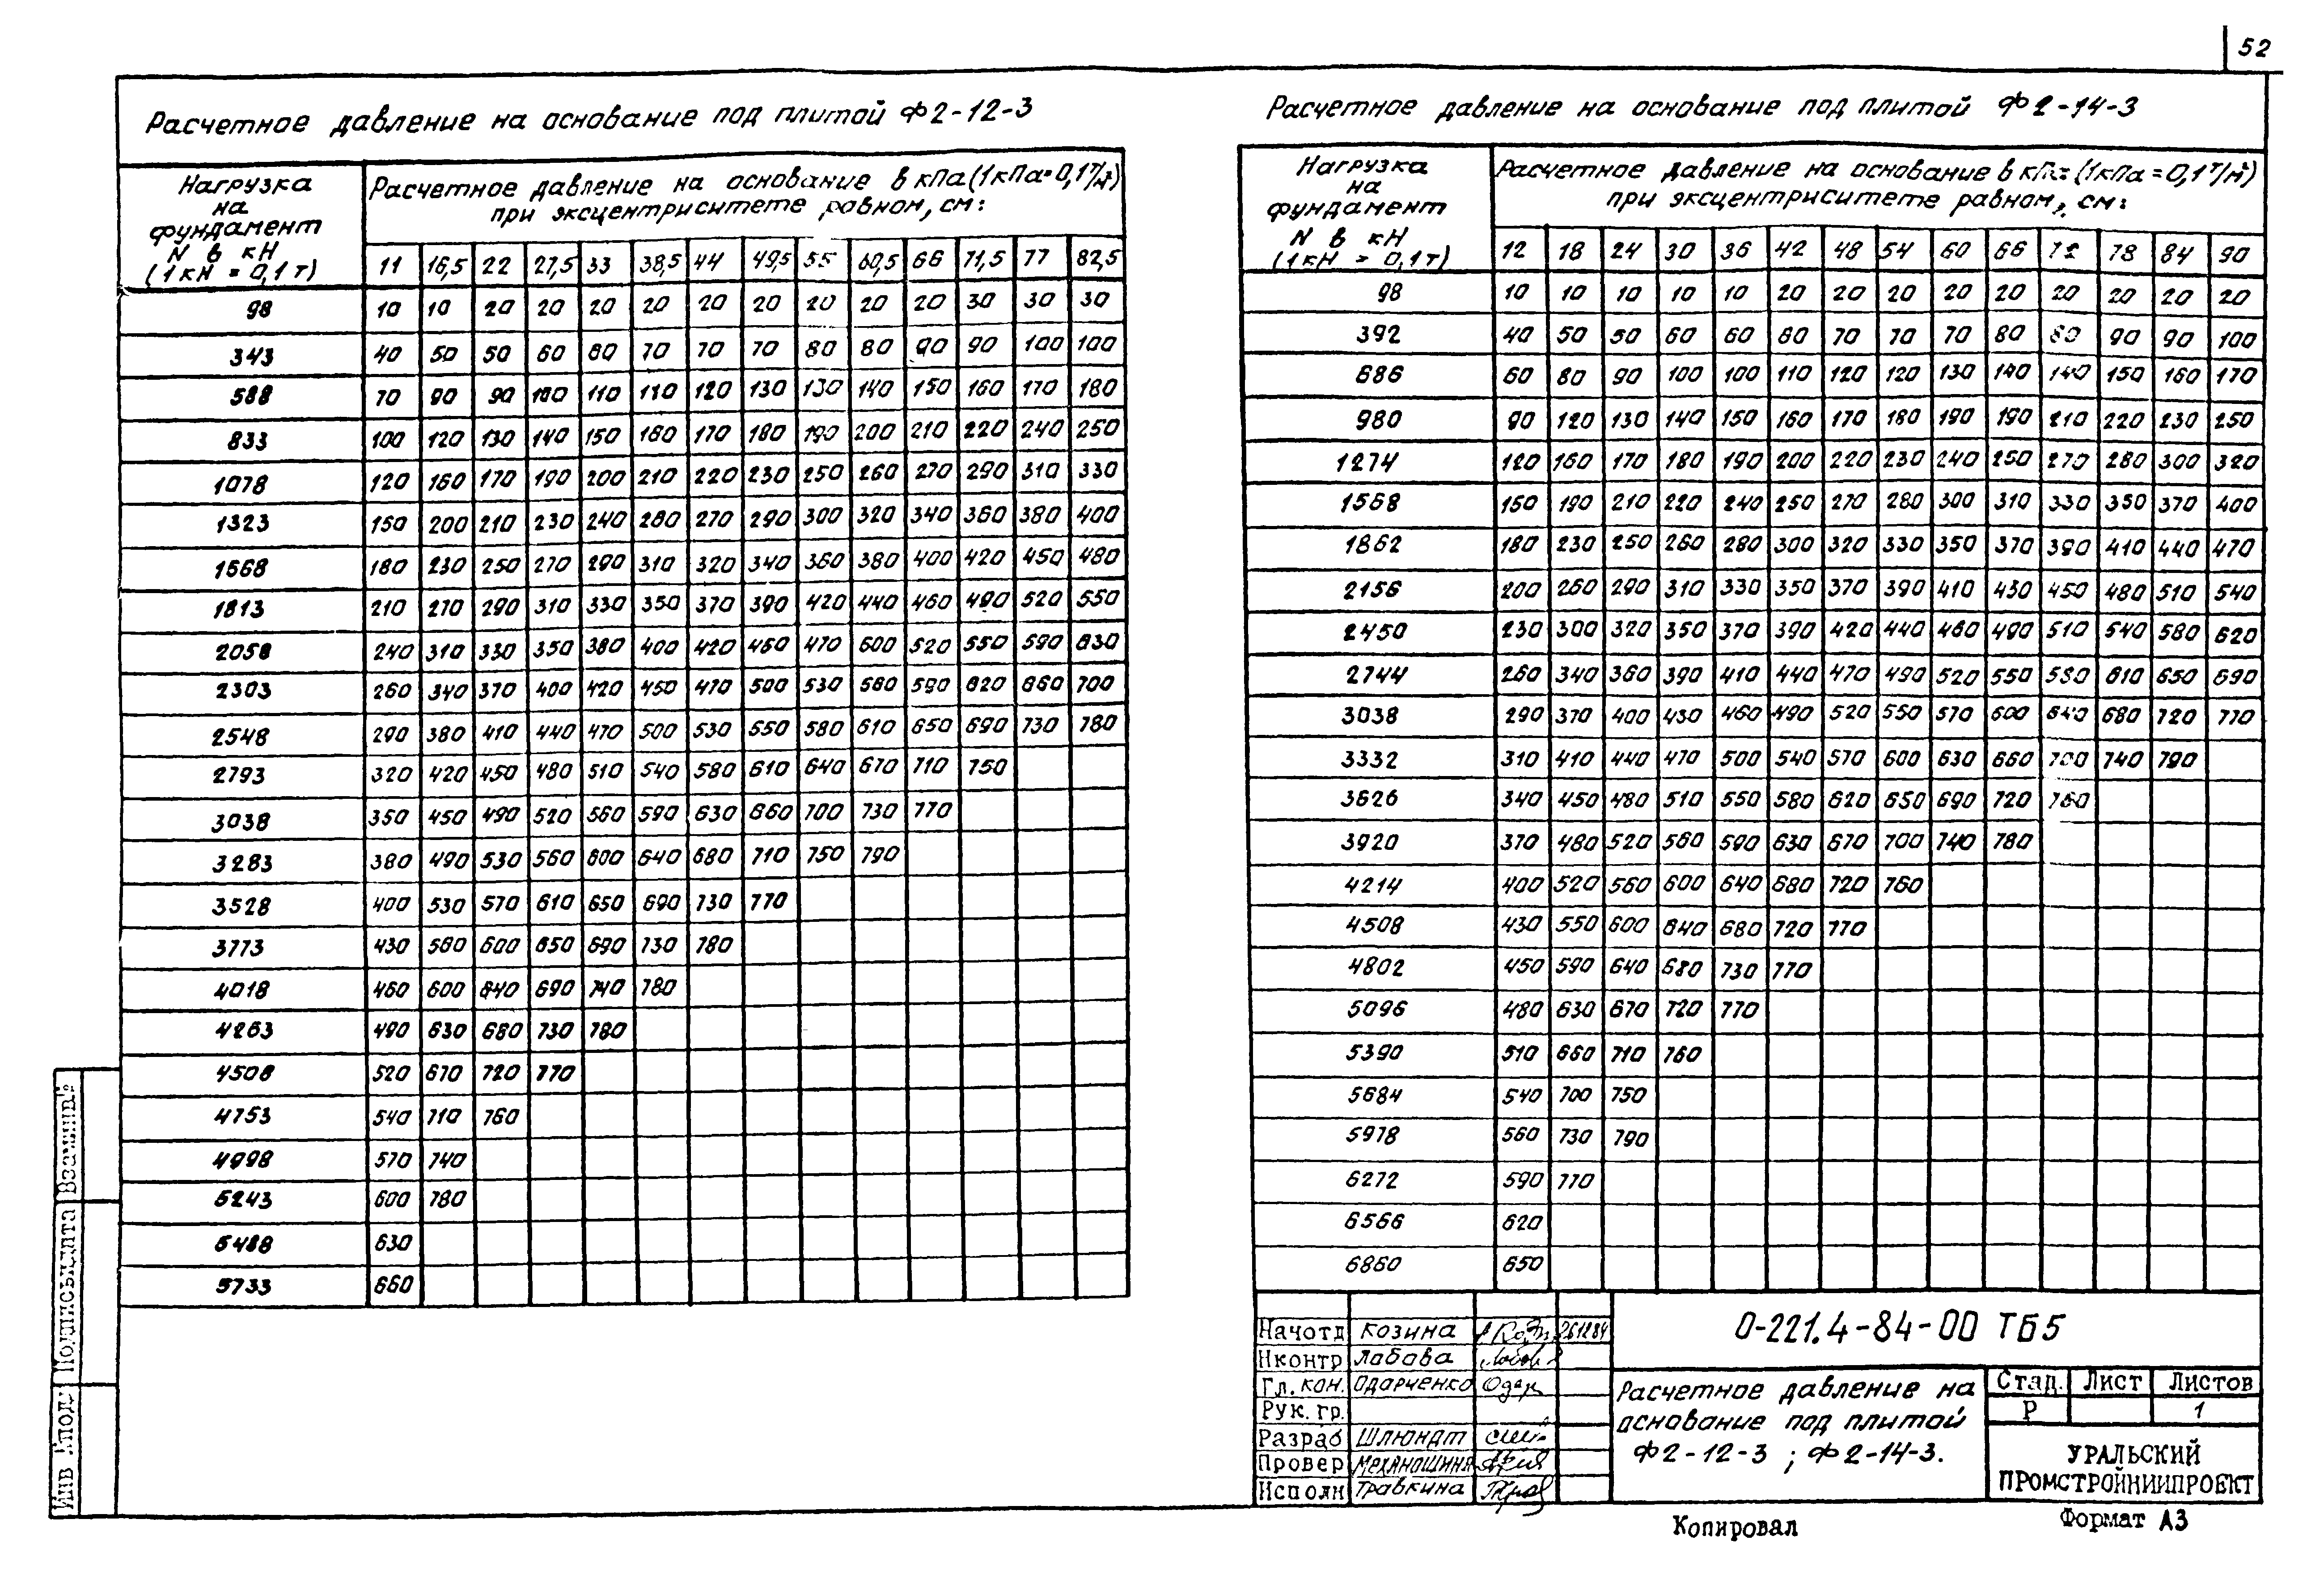 52
Расчетное давление на основание под плитой Ф2-12-3
Нагрузка на фундамент N в кН (1кН = 0,1т)
Расчетное давление на основание в кПа (1кПа=0,1Т/м²)
при эксцентриситете равном, см:
11 16,5 22 27,5 33 38,5 44 49,5 55 60,5 66 71,5 77 82,5
98 10 10 20 20 20 20 20 20 20 20 20 30 30 30
343 40 50 50 60 60 70 70 70 80 80 90 90 100 100
588 70 90 90 100 110 110 120 130 130 140 150 160 170 180
833 100 120 130 140 150 160 170 180 190 200 210 220 240 250
1078 120 160 170 190 200 210 220 230 250 260 270 290 310 330
1323 150 200 210 230 240 260 270 290 300 320 340 360 380 400
1568 180 230 250 270 290 310 320 340 360 380 400 420 450 480
1813 210 270 290 310 330 350 370 390 420 440 460 490 520 550
2058 240 310 330 350 380 400 420 450 470 500 520 550 590 630
2303 260 340 370 400 420 450 470 500 530 560 590 620 660 700
2548 290 380 410 440 470 500 530 550 580 610 650 690 730 780
2793 320 420 450 480 510 540 580 610 640 670 710 750
3038 350 450 490 520 560 590 630 660 700 730 770
3283 380 490 530 560 600 640 680 710 750 790
3528 400 530 570 610 650 690 730 770
3773 430 560 600 650 690 730 780
4018 460 600 640 690 740 780
4263 490 630 680 730 780
4508 520 670 720 770
4753 540 710 760
4998 570 740
5243 600 780
5488 630
5733 660
Расчетное давление на основание под плитой Ф2-14-3
Нагрузка на фундамент N в кН (1кН = 0,1т)
Расчетное давление на основание в кПа (1кПа=0,1Т/м²)
при эксцентриситете равном, см:
12 18 24 30 36 42 48 54 60 66 72 78 84 90
98 10 10 10 10 10 20 20 20 20 20 20 20 20 20
392 40 50 50 60 60 60 70 70 70 80 80 90 90 100
686 60 80 90 100 100 110 120 120 130 140 140 150 160 170
980 90 120 130 140 150 160 170 180 190 190 210 220 230 250
1274 120 160 170 180 190 200 220 230 240 250 270 280 300 320
1568 150 190 210 220 240 250 270 280 300 310 330 350 370 400
1862 180 230 250 260 280 300 320 330 350 370 390 410 440 470
2156 200 260 290 310 330 350 370 390 410 430 450 480 510 540
2450 230 300 320 350 370 390 420 440 460 490 510 540 580 620
2744 260 340 360 390 410 440 470 490 520 550 580 610 650 690
3038 290 370 400 430 460 490 520 550 570 600 640 680 720 770
3332 310 410 440 470 500 540 570 600 630 660 700 740 790
3626 340 450 480 510 550 580 620 650 690 720 760
3920 370 480 520 560 590 630 670 700 740 780
4214 400 520 560 600 640 680 720 760
4508 430 550 600 640 680 720 770
4802 450 590 640 680 730 770
5096 480 630 670 720 770
5390 510 660 710 760
5684 540 700 750
5978 560 730 790
6272 590 770
6566 620
6860 650
Взам инв.№
Подпись и дата
Инв № подл.
Начотд Козина 261284
Нконтр Лабава
Гл. кон. Одарченко
Рук. гр.
Разраб Шлюндт
Провер Механошина
Исполн Травкина
0-221.4-84-00 ТБ5
Расчетное давление на
основание под плитой
Ф2-12-3 ; Ф2-14-3.
Стад. Лист Листов
Р 1
УРАЛЬСКИЙ
ПРОМСТРОЙНИИПРОЕКТ
Копировал
Формат А3